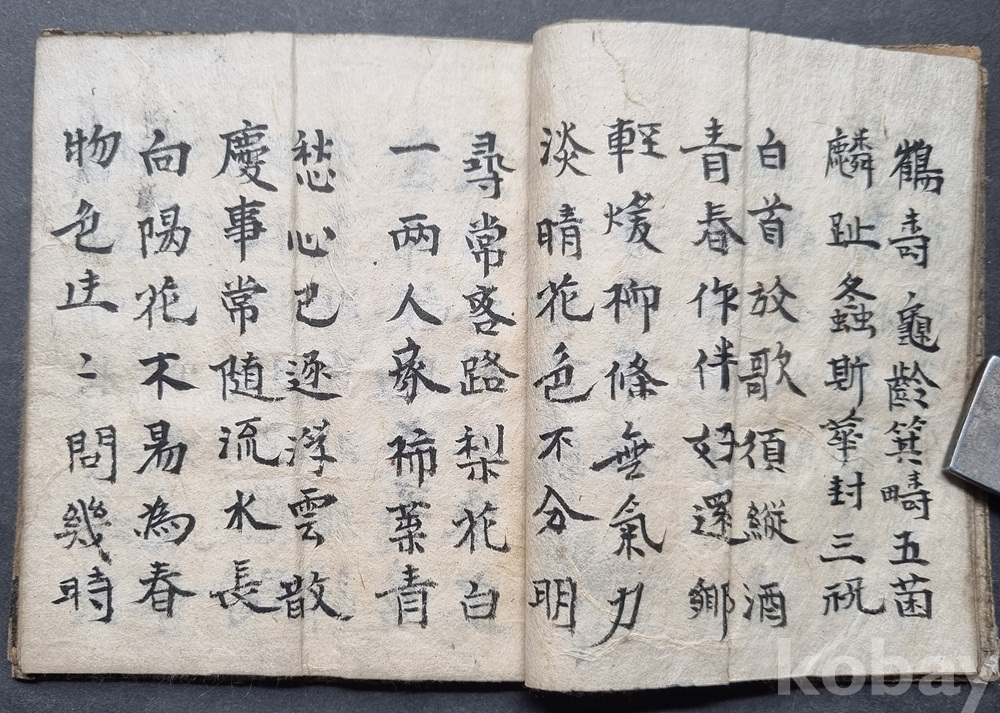 鶴壽龜齡箕疇五菌
麟趾螽斯華封三祝
白首放歌須縱酒
青春作伴好還鄉
輕煖柳條無氣力
淡晴花色不分明
尋常客路梨花白
一兩人家柿葉青
愁心已逐浮雲散
慶事常随流水長
向陽花木易為春
物色生〻問幾時
kobay